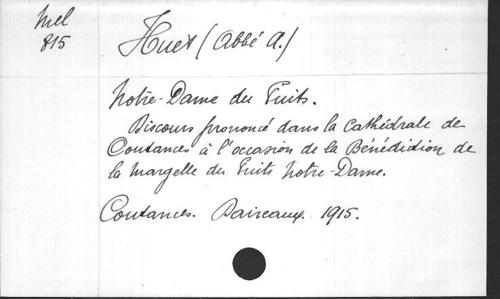 Mel
815
Huet (Abbé A.)
Notre-Dame du Puits.
Discours prononcé dans la Cathédrale de
Coutances à l'occasion de la Bénédiction de
la Margelle du Puits Notre-Dame.
Coutances. Daireaux. 1915.